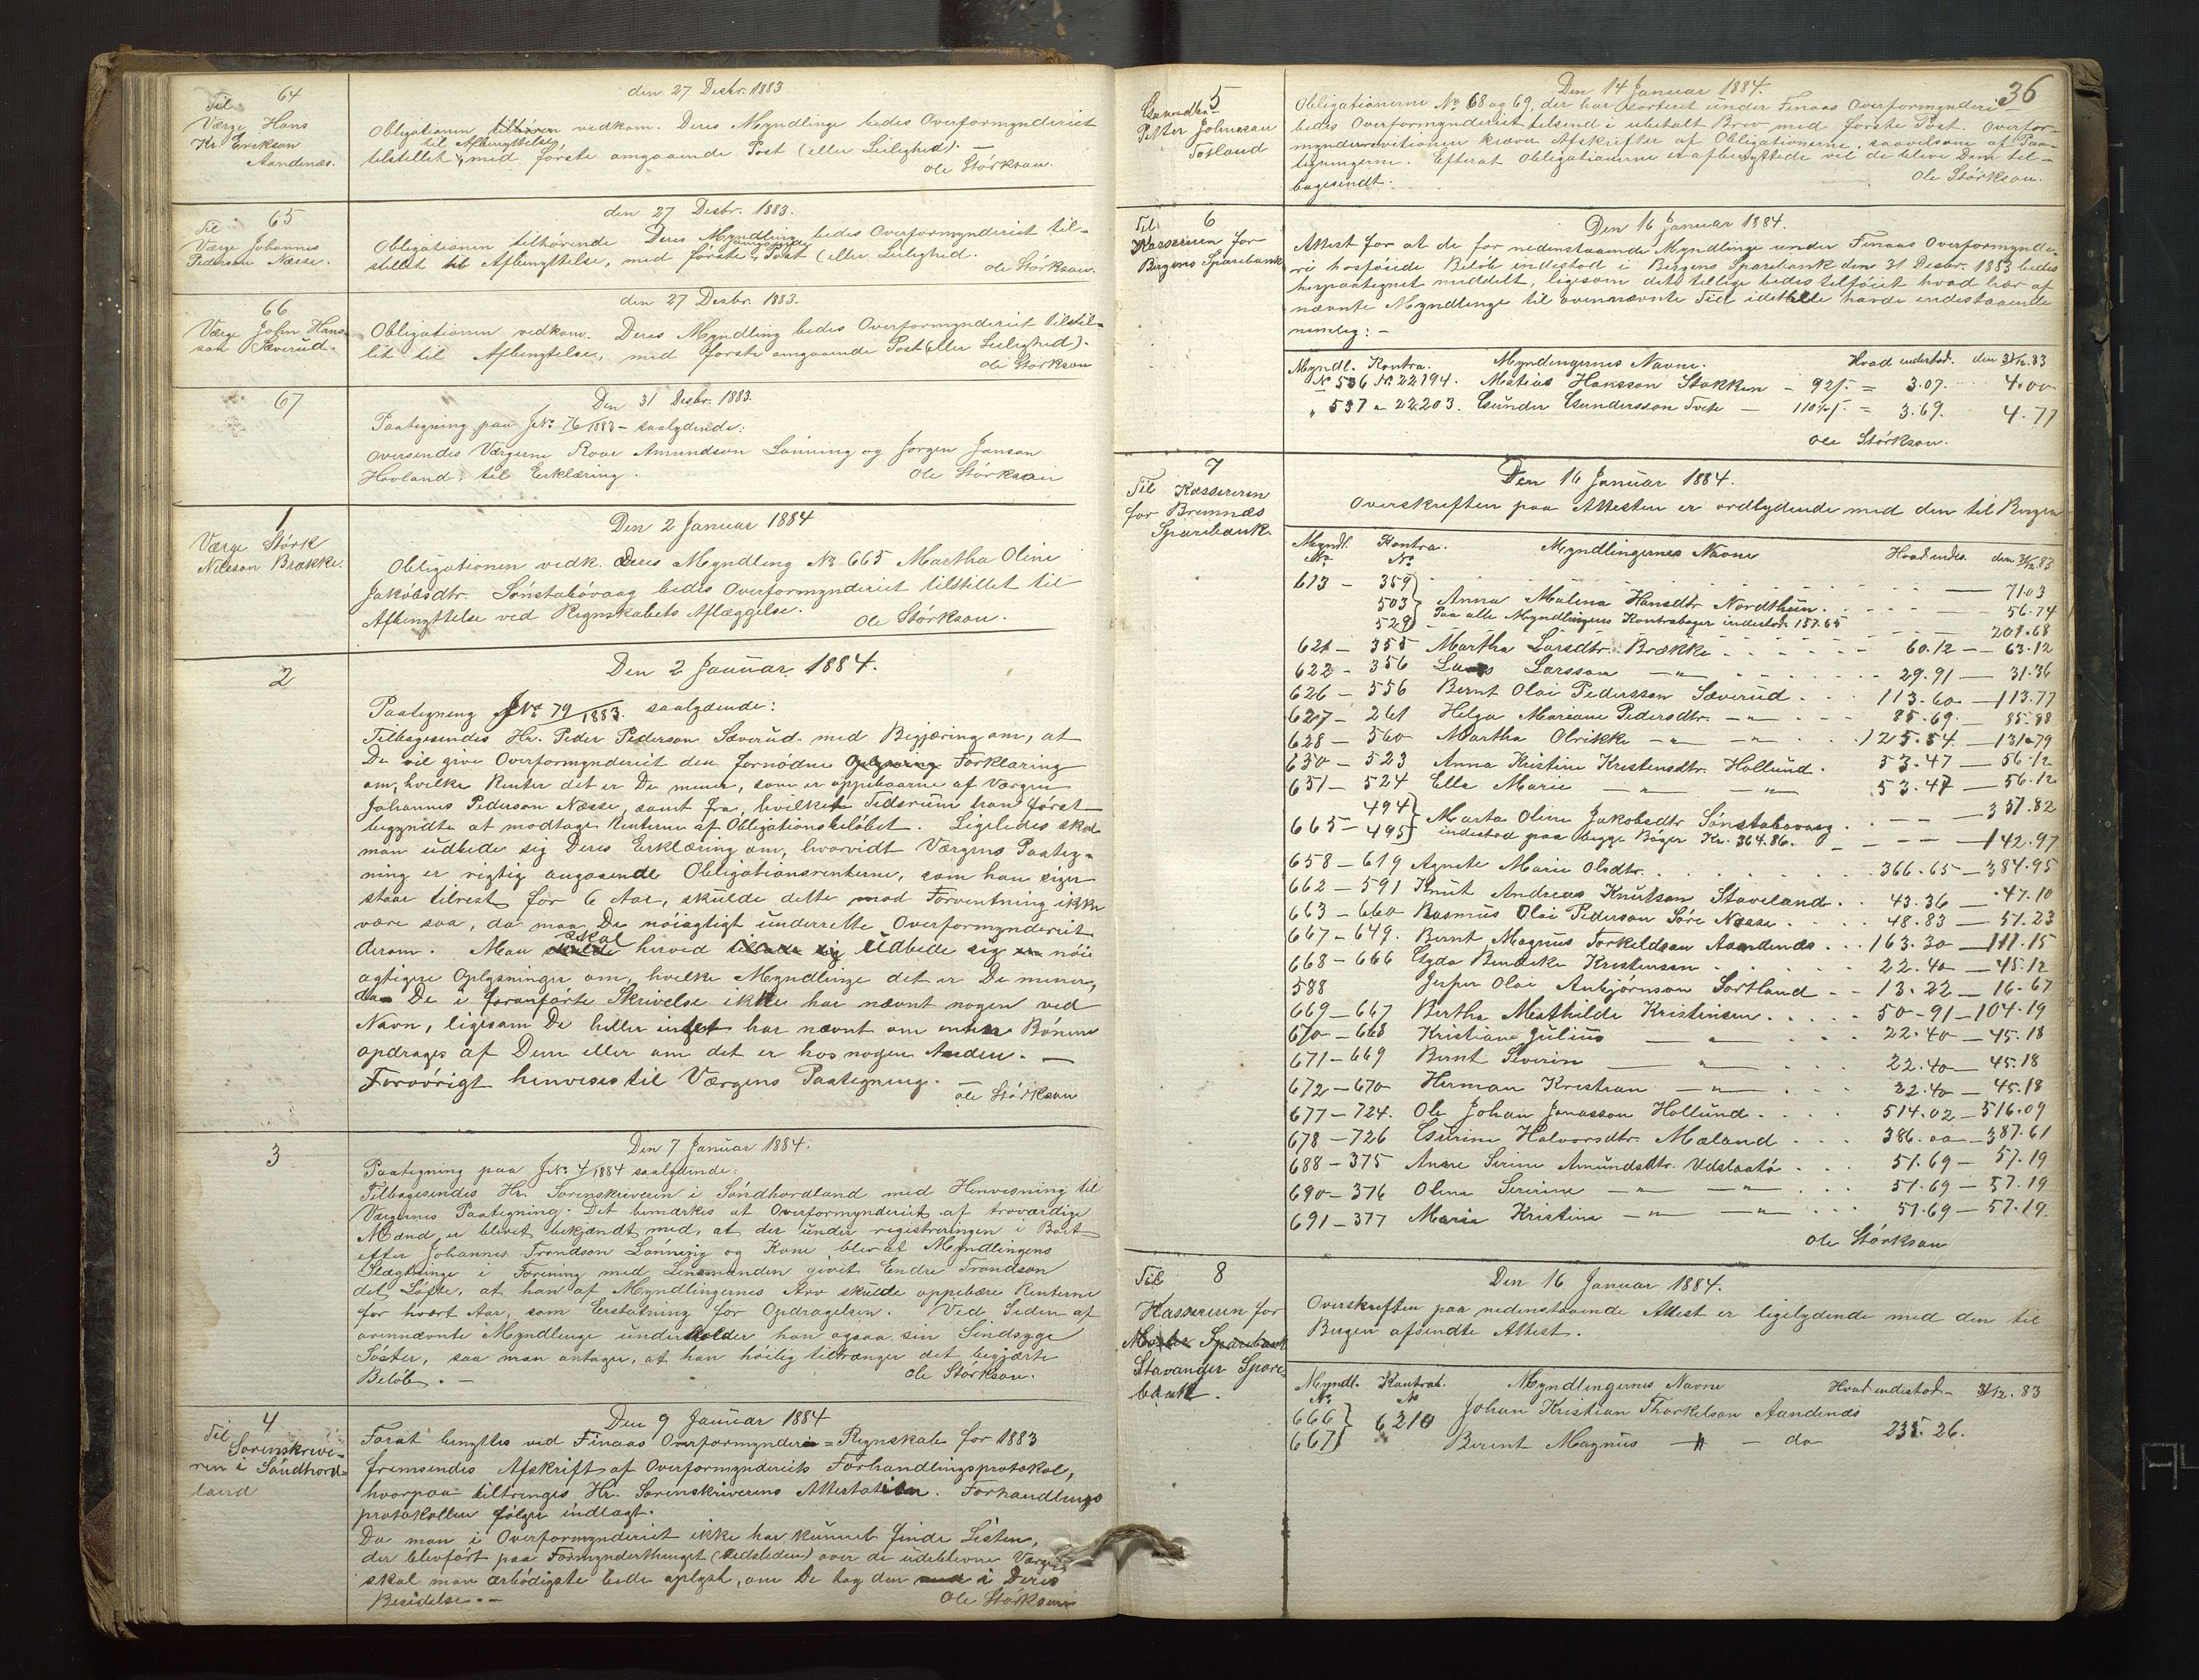 64
Til
Værge Hans
Kr. Erikson
Aandenæs.
den 27 Desbr. 1883
Obligationen tilhören vedkom. Deres Myndlinge bedes Overformynderiet
til Afbenyttelse,
tilstillet, med förste omgaaende Post (eller Leilighed). —
Ole Störkson.
65
Til
Værge Johannes
Pederson Næsse.
den 27 Desbr. 1883.
Obligationen tilhörende Deres Myndling bedes Overformynderiet til-
omgaaende
stillet til Afbenyttelse, med förste Post (eller Leilighed.
Ole Störkson.
66
Værge John Hans-
son Sæverud.
den 27 Desbr. 1883.
Obligationen vedkom. Deres Myndling bedes Overformynderiet tilstil-
let til Afbenytelse, med förste omgaaende Post (eller Leilighed).
Ole Störkson
67
Den 31 Desbr. 1883.
Paategning paa JNo 76/1883 – saalydende:
Oversendes Værgerne Roar Amundson Lönning og Jörgen Janson
Hovland: til Erklæring.
Ole Störkson
1
Værge Störk
Nilsson Brække.
Den 2 Januar 1884
Obligationen vedk. Deres Myndling No 665 Martha Oline
Jakobsdtr. Sönstabövaag bedes Overformynderiet tilstillet til
Afbenyttelse ved Regnskabets Aflæggelse.
Ole Störkson.
2
Den 2 Januar 1884.
Paategning JNo 79/1883. saalydende:
Tilbagesendes Hr. Peder Pederson Sæverud med Begjæring om, at
De vil give Overformynderiet den fornödne Oplysning Forklaring
om, hvilke Renter det er De mener, som er oppebaarne af Værgen
Johannes Pederson Næsse, samt fra hvilket Tidsrum han först
begyndte at modtage Renterne af Obligationsbelöbet. Ligeledes skal
man udbede sig Deres Erklæring om, hvorvidt Værgens Paateg-
ning er rigtig angaaende Obligationsrenterne, som han siger
staar tilrest for 6 Aar, skulde dette mod Forventning ikke
være saa, da maa De nöiagtigt underrette Overformynderiet
skal
derom. Man skulde herved udbede sig nöi
agtigere Oplysninger om, hvilke Myndlinge det er De mener,
da De i foranförte Skrivelse ikke har nævnt nogen ved
Navn, ligesom De heller intet har nævnt om Börnene
opdrages af Dem eller om det er hos nogen Anden. —
Forövrigt henvises til Værgens Paategning. —
Ole Störkson
3
Den 7 Januar 1884.
Paategning paa JNo 4/1884 saalydende:
Tilbagesendes Hr. Sorenskriveren i Söndhordland med Henvisning til
Værgernes Paategning. Det bemærkes at Overformynderiet af troværdige
Mænd er blevet bekjændt med, at der under registreringen i Boet
efter Johannes Trondson Lönning og Kone, blev af Myndlingens
Slægtninge i Forening med Lensmanden givet Endre Trondson
det Löfte, at han af Myndlingernes Arv skulde oppebære Renterne
for hvert Aar, som Erstatning for Opdragelsen. Ved Siden af
ovennævnte Myndlinge underholder han ogsaa sin Sindsyge
Söster, saa man antager, at han höilig tiltrænger det begjærte
Belöb. —
Ole Störkson.
4
Til
Sorenskrive-
ren i Söndhord-
land
Den 9 Januar 1884
Forat benyttes ved Finaas Overformynderi = Regnskab for 1883
fremsendes Afskrift af Overformynderiets Forhandlingsprotokol,
hvorpaa tiltrænges Hr. Sorenskriverens Attestation. Forhandlings
protokollen fölger indlagt.
Da man i Overformynderiet ikke har kunnet finde Listen,
der blev fört paa Formynderthinget (Ledsleden) over de udeblevne Værger
skal man ærbödigste bede oplyst, om De tog den med i Deres
Besidelse. —
Ole Störkson
36
5
Gaardbr.
Petter Johnsson
Totland
Den 14 Januar 1884.
Obligationerne No 68 og 69, der har sorteret under Finaas Overformynderi
bedes Overformynderiet tilsend i ubetalt Brev med förste Post. Overfor-
mynderrevitionen kræver Afskrifter af Obligationerne, saavelsom af Paa-
tegningerne. Efterat Obligationerne er afbenyttede vil de blive Dem til-
bagesendt.
Ole Störkson.
6
Til
Kassereren for
Bergens Sparebank
Den 16 Januar 1884.
Attest for at de for nedenstaaende Myndlinge under Finaas Overformynde-
ri hosföiede Belöb indestod i Bergens Sparebank den 31 Desbr. 1883 bedes
herpaategnet meddelt, ligesom det tillige bedes tilföiet hvad hver af
nævnte Myndlinge til ovennævnte Tid idethele havde indestaaende
nemlig: —
Myndl. Kontra. Myndingernes Navne. Hvad indestod. den 31/12.83
No 536 No 22194. Matias Hansson Stokken – 92/- = 3.07. 4.00
" 537 " 22203. Gunder Gundersson Tveite — 110/- = 3.69. 4.77
Ole Störkson.
7
Til Kassereren
for Bremnæs
Sparebank.
Den 16 Januar 1884.
Overskriften paa Attesten er ordlydende med den til Bergen
Myndl. Kontra. Myndlingernes Navne Hvad indes. den 31/12 83
No No
613 – 359 — 71.03
503 Anna Malina Hansdtr Nordthun. — 56.74
529 Paa alle Myndlingens Kontrabøger indestod 157.65 207.68
621 – 355 Martha Larsdtr. Brække 60.12 — 63.12
622 – 356 Lars Larsson —"— 29.91 — 31.36
626 – 556 Bernt Olai Pedersson Sæverud 113.60 — 113.77
627 – 261 Helga Mariane Pedersdtr. —"— 85.69. — 85.88
628 – 560 Martha Olrikke —"— —"— 125.54 — 131.79
630 – 523 Anna Kristine Kristensdtr. Hollund. 53.47 — 56.12
651 – 524 Ella Marie —"— —"— 53.47 — 56.12
494 — 357.82
665 – 495 Marta Oline Jakobsdtr Sönstabovaag
indestod paa begge Böger Kr. 364.86. — 142.97
658 – 619 Agnete Marie Olsdtr. 366.65 — 384.95
662 – 591 Knut Andreas Knutson Staveland. 43.36 — 47.10
663 – 660 Rasmus Olai Pederson Söre Næsse. 48.83 — 51.23
667 – 649. Bernt Magnus Torkildson Aandenæs. 163.30 — 111.15
668 – 666 Gyda Bendicke Kristensen 22.40 — 45.12
588 Jesper Olai Anbjörnson Sortland 13.22 — 16.67
669 – 667 Bertha Mathilde Kristensen 50-91 — 104.19
670 – 668 Kristiane Julius —"— 22.40 — 45.18
671 – 669 Bernt Severin —"— 22.40 — 45.18
672 – 670 Herman Kristian —"— 22.40 — 45.18
677 – 724. Ole Johan Jonasson Hollund 514.02 — 516.09
678 – 726 Gurine Halvorsdtr. Mæland 386.00 — 387.61
688 – 375 Anne Serine Amundsdtr. Udslaatö 51.69 — 57.19
690 – 376 Olena Sererine —"— —"— 51.69 — 57.19
691 – 377 Marie Kristine —"— —"— 51.69 — 57.19.
Ole Störkson
8
Til
Kassereren for
Sparebank
Stavanger Spare-
bank.
Den 16 Januar 1884.
Overskriften paa nedenstaaende Attest er ligelydende med den til
Bergen afsendte Attest.
Myndl. Kontrab. Myndlingernes Navne Hvad indestod — 31/12. 83
No No
666 Johan Kristian Thorkelson Aandenæs
6210 235.26.
667 Berent Magnus —"— do